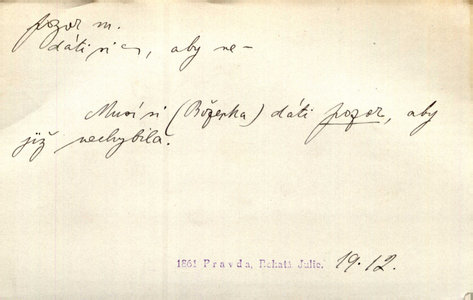 pozor m.
dáti si ~, aby ne-
Musí si (Boženka) dáti pozor, aby
již nechybila.
1861 Pravda, Bohatá Julie. 19.12.